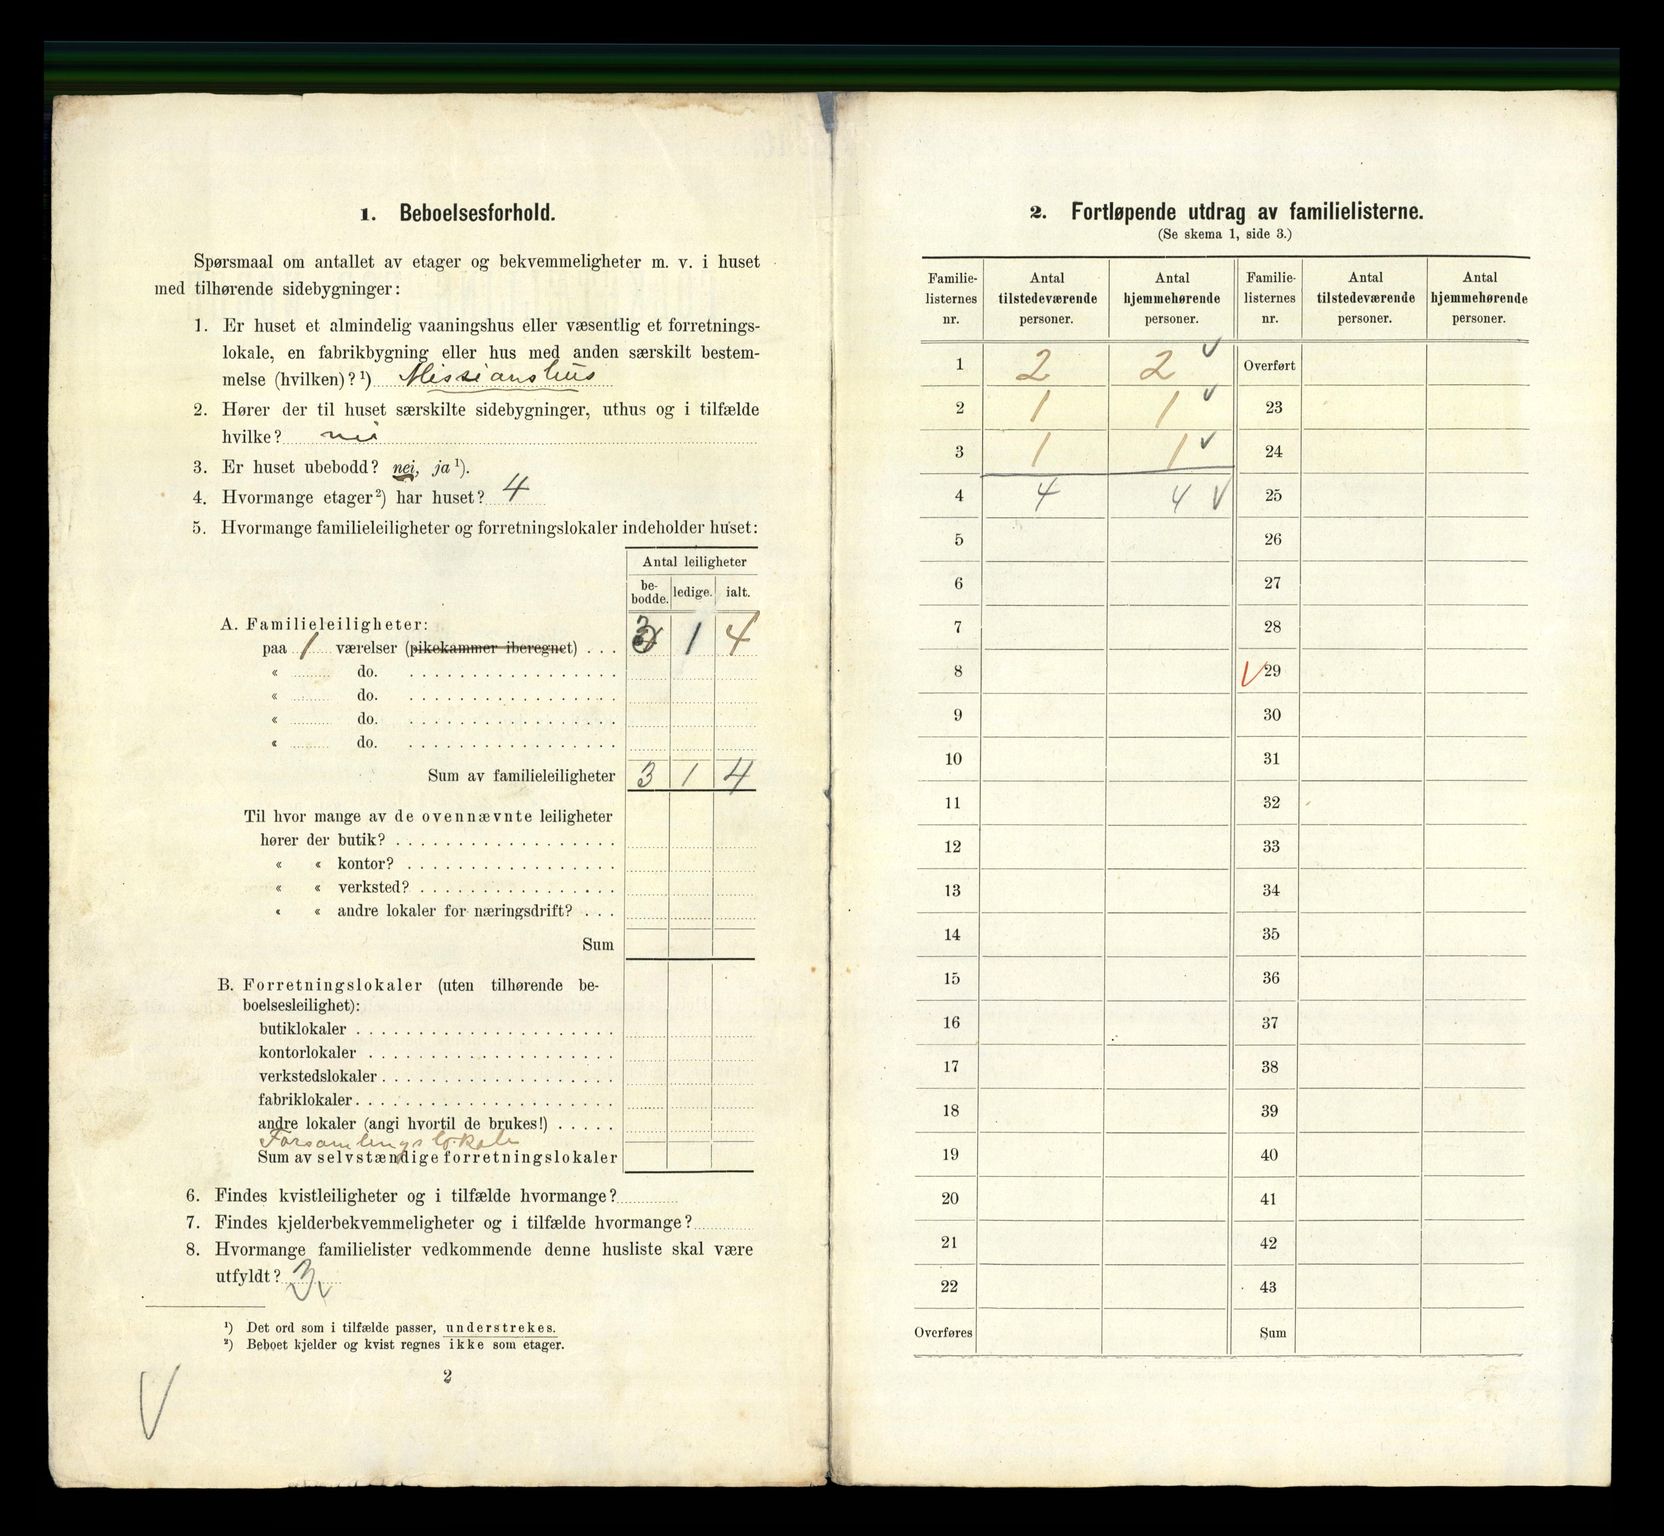 1. Beboelsesforhold.
Spørsmaal om antallet av etager og bekvemmeligheter m. v. i huset
med tilhørende sidebygninger:
1. Er huset et almindelig vaaningshus eller væsentlig et forretnings-
lokale, en fabrikbygning eller hus med anden særskilt bestem-
melse (hvilken)? ¹) Missionshus
2. Hører der til huset særskilte sidebygninger, uthus og i tilfælde
hvilke? nei
3. Er huset ubebodd? nei, ja ¹).
4. Hvormange etager ²) har huset? 4
5. Hvormange familieleiligheter og forretningslokaler indeholder huset:
Antal leiligheter
be-
bodde. ledige. ialt.
A. Familieleiligheter:
paa 1 værelser (pikekammer iberegnet) . . . 3 1 4
« do.
« do.
« do.
« do.
Sum av familieleiligheter 3 1 4
Til hvor mange av de ovennævnte leiligheter
hører der butik?
« « kontor?
« « verksted?
« « andre lokaler for næringsdrift? . . .
Sum
B. Forretningslokaler (uten tilhørende be-
boelsesleilighet):
butiklokaler
kontorlokaler
verkstedslokaler
fabriklokaler
andre lokaler (angi hvortil de brukes!)
Forsamlingslokale
Sum av selvstændige forretningslokaler
6. Findes kvistleiligheter og i tilfælde hvormange?
7. Findes kjelderbekvemmeligheter og i tilfælde hvormange?
8. Hvormange familielister vedkommende denne husliste skal være
utfyldt? 3
¹) Det ord som i tilfælde passer, understrekes.
²) Beboet kjelder og kvist regnes ikke som etager.
2
2. Fortløpende utdrag av familielisterne.
(Se skema 1, side 3.)
Familie- Antal Antal Familie- Antal Antal
listernes tilstedeværende hjemmehørende listernes tilstedeværende hjemmehørende
nr. personer. personer. nr. personer. personer.
1 2 2 Overført
2 1 1 23
3 1 1 24
4 4 4 25
5 26
6 27
7 28
8 29
9 30
10 31
11 32
12 33
13 34
14 35
15 36
16 37
17 38
18 39
19 40
20 41
21 42
22 43
Overføres Sum